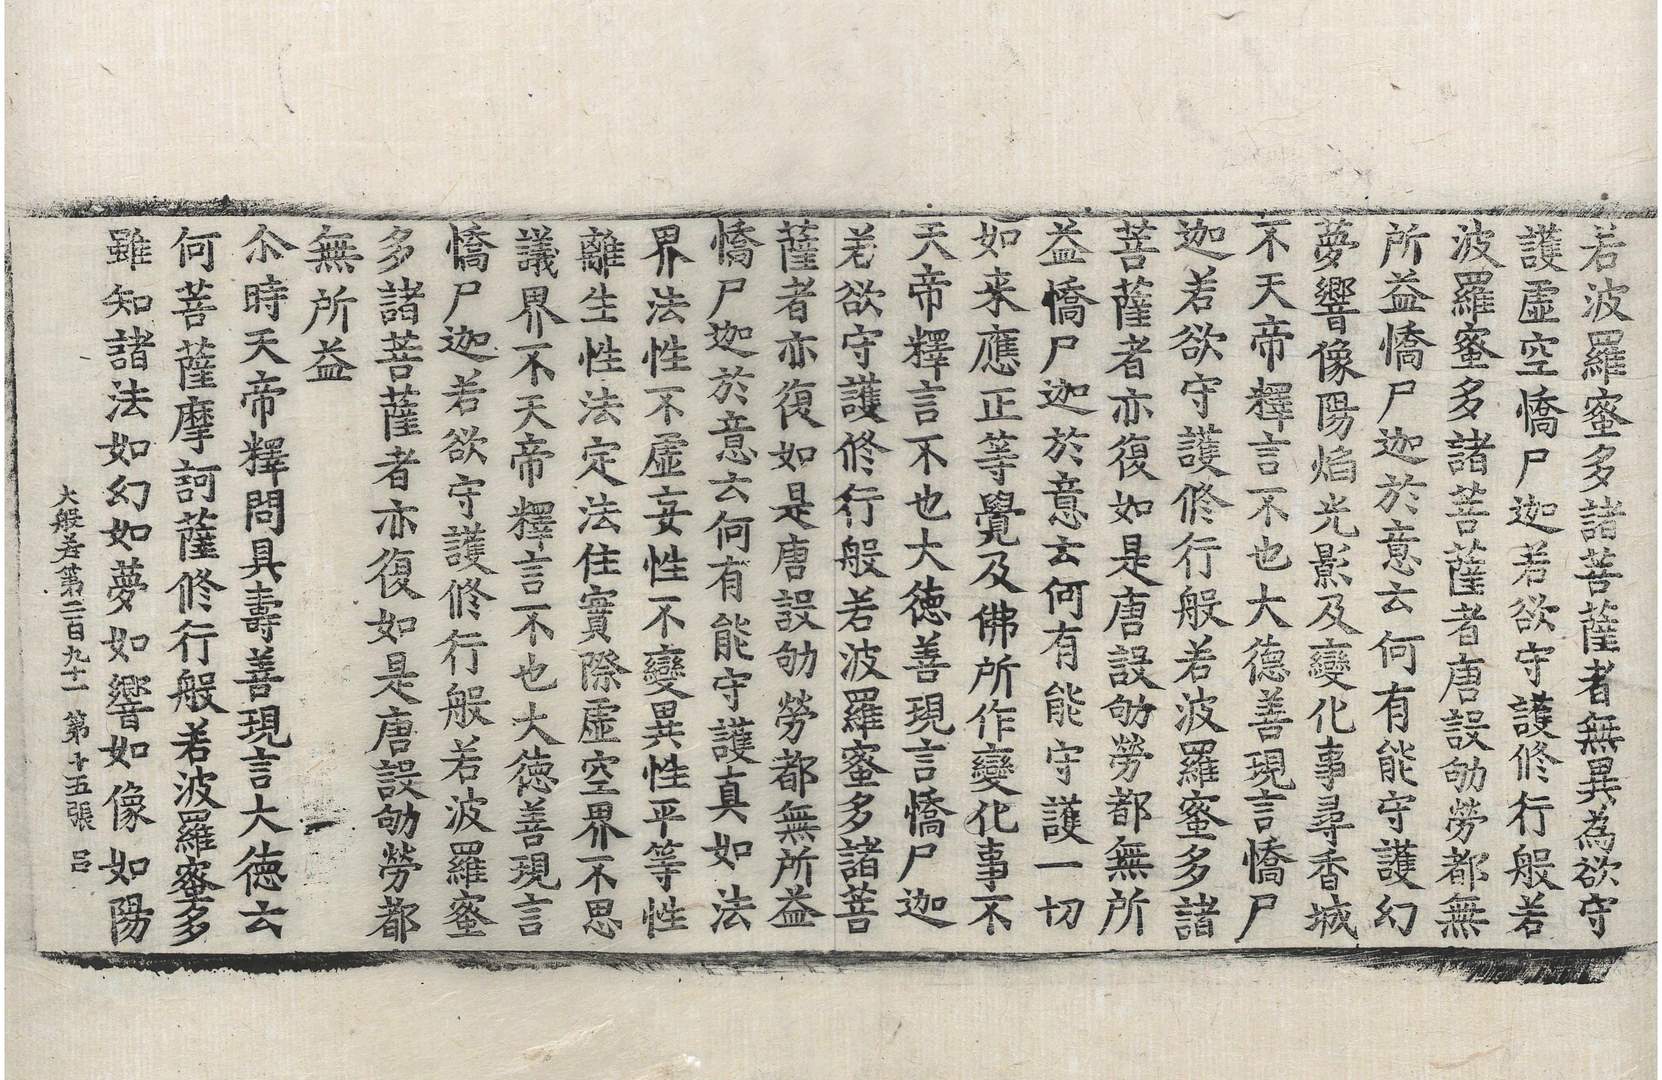 若波羅蜜多諸菩薩者無異為欲守
護虛空憍尸迦若欲守護修行般若
波羅蜜多諸菩薩者唐設劬勞都無
所益憍尸迦於意云何有能守護幻
夢響像陽焰光影及變化事尋香城
不天帝釋言不也大德善現言憍尸
迦若欲守護修行般若波羅蜜多諸
菩薩者亦復如是唐設劬勞都無所
益憍尸迦於意云何有能守護一切
如来應正等覺及佛所作變化事不
天帝釋言不也大徳善現言憍尸迦
若欲守護修行般若波羅蜜多諸菩
薩者亦復如是唐設劬勞都無所益
憍尸迦於意云何有能守護真如法
界法性不虛妄性不變異性平等性
離生性法定法住實際虛空界不思
議界不天帝釋言不也大徳善現言
憍尸迦若欲守護修行般若波羅蜜
多諸菩薩者亦復如是唐設劬勞都
無所益
尒時天帝釋問具壽善現言大徳云
何菩薩摩訶薩修行般若波羅蜜多
雖知諸法如幻如夢如響如像如陽
大般若第二百九十一 第十五張 呂